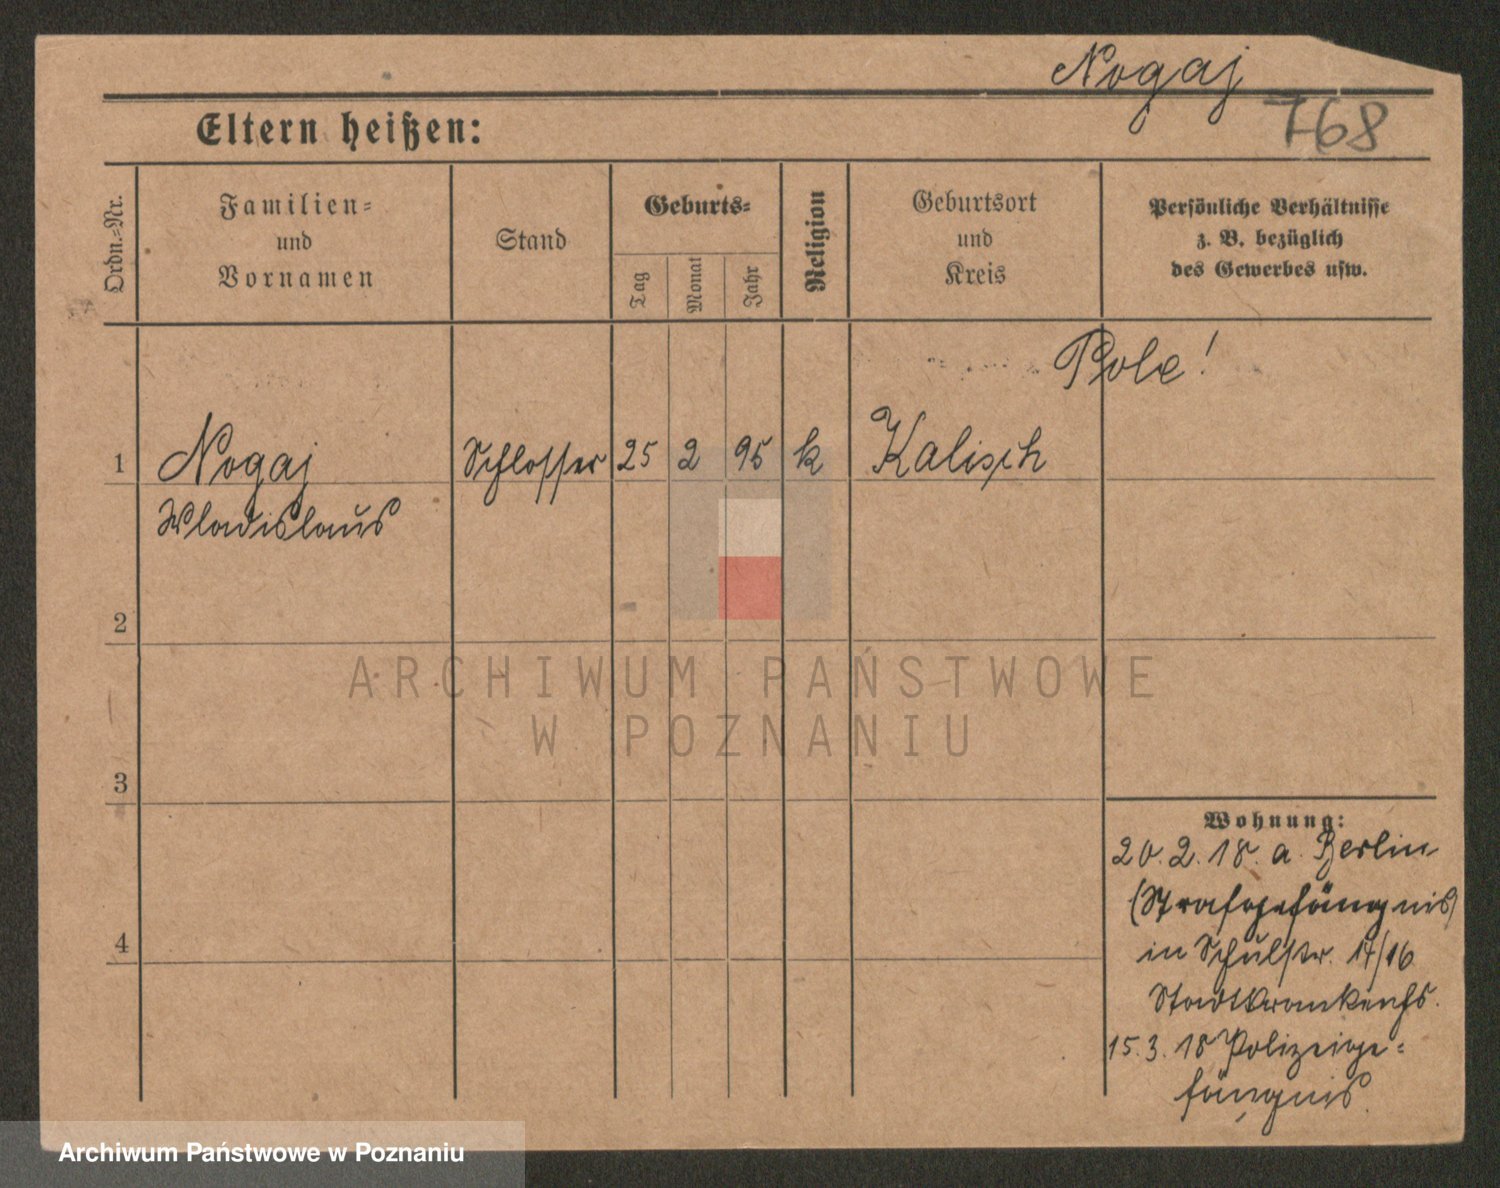 Nogaj
768
Eltern heißen:
Ordn.-Nr.
Familien-
und
Vornamen
Stand
Geburts-
Tag
Monat
Jahr
Religion
Geburtsort
und
Kreis
Persönliche Verhältnisse
z. B. bezüglich
des Gewerbes usw.
Pole!
1 Nogaj Schlosser 25 2 95 k Kalisch
Wladislaus
2
3
4
Wohnung:
20.2.18. a. Berlin
(Strafgefängnis)
in Schulstr. 17/16
Stadtkrankenhs.
15.3.18 Polizeige-
fängnis.
ARCHIWUM PAŃSTWOWE
W POZNANIU
Archiwum Państwowe w Poznaniu